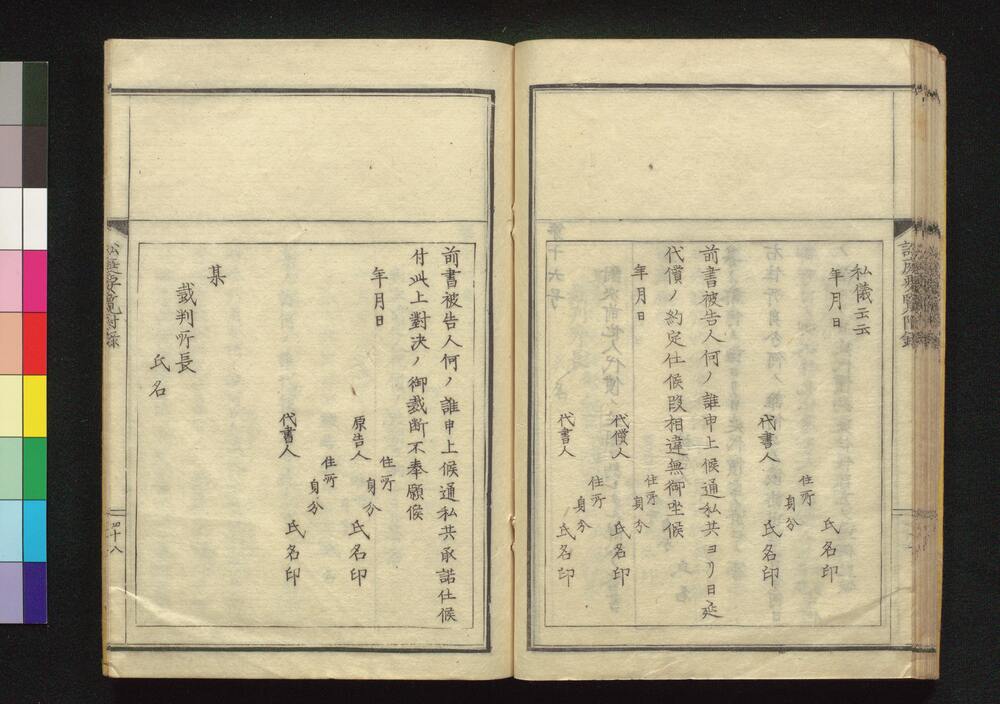 私儀云云
年月日
氏名印
住所
身分
代書人 氏名印
前書被告人何ノ誰申上候通私共ヨリ日延
代償ノ約定仕候段相違無御坐候
年月日
住所
身分
代償人 氏名印
住所
身分
代書人 氏名印
前書被告人何ノ誰申上候通私共承諾仕候
付此上對決ノ御裁断不奉願候
年月日
住所
身分
原告人 氏名印
住所
身分
代書人 氏名印
某
裁判所長
氏名
四十八